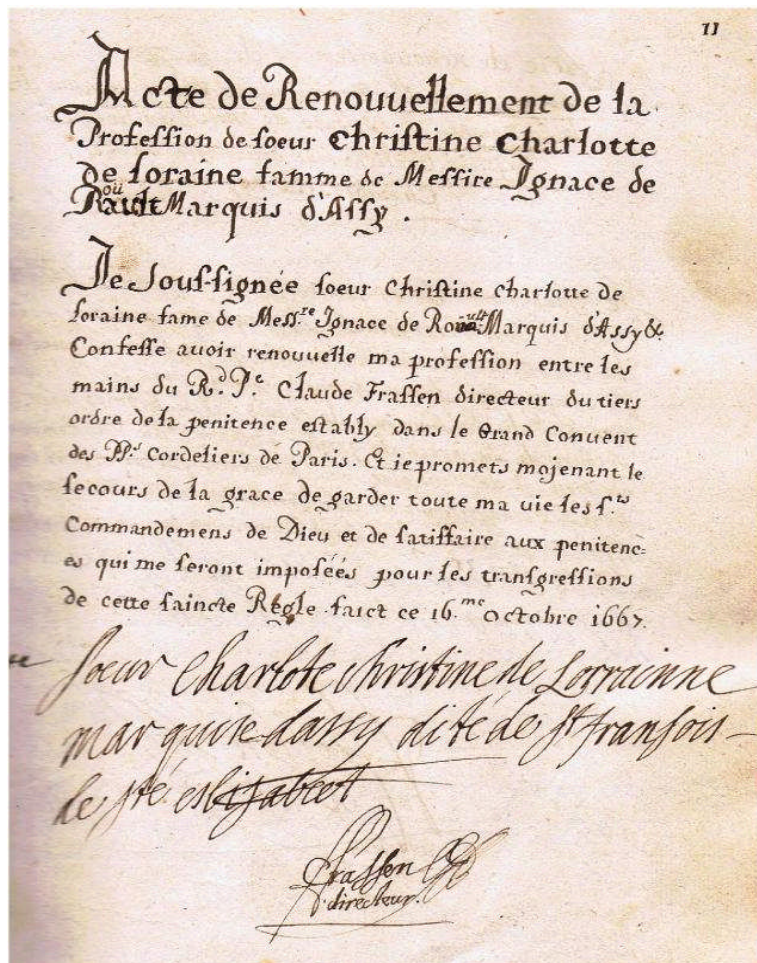 11
Acte de Renouuellement de la
Profession de soeur Christine Charlotte
de loraine famme de Messire Ignace de
Rouault Marquis d'Assy.
Je Sous-signée soeur Christine Charlotte de
loraine fame de Mess.re Ignace de Rouault Marquis d'Assy &.
Confesse avoir renouvelle ma profession entre les
mains du R.d P.e Claude Frassen directeur du tiers
ordre de la penitence estably dans le Grand Conuent
des PP.es Cordeliers de Paris. Et ie promets mojenant le
secours de la grace de garder toute ma vie les s.ts
Commandemens de Dieu et de satisfaire aux penitenc=
es qui me seront imposées pour les transgressions
de cette saincte Regle. faict ce 16.me Octobre 1667.
soeur Charlote christine de Lorrainne
marquise dassy dite de st fransois
de ste eslizabeet
Frassen
directeur.